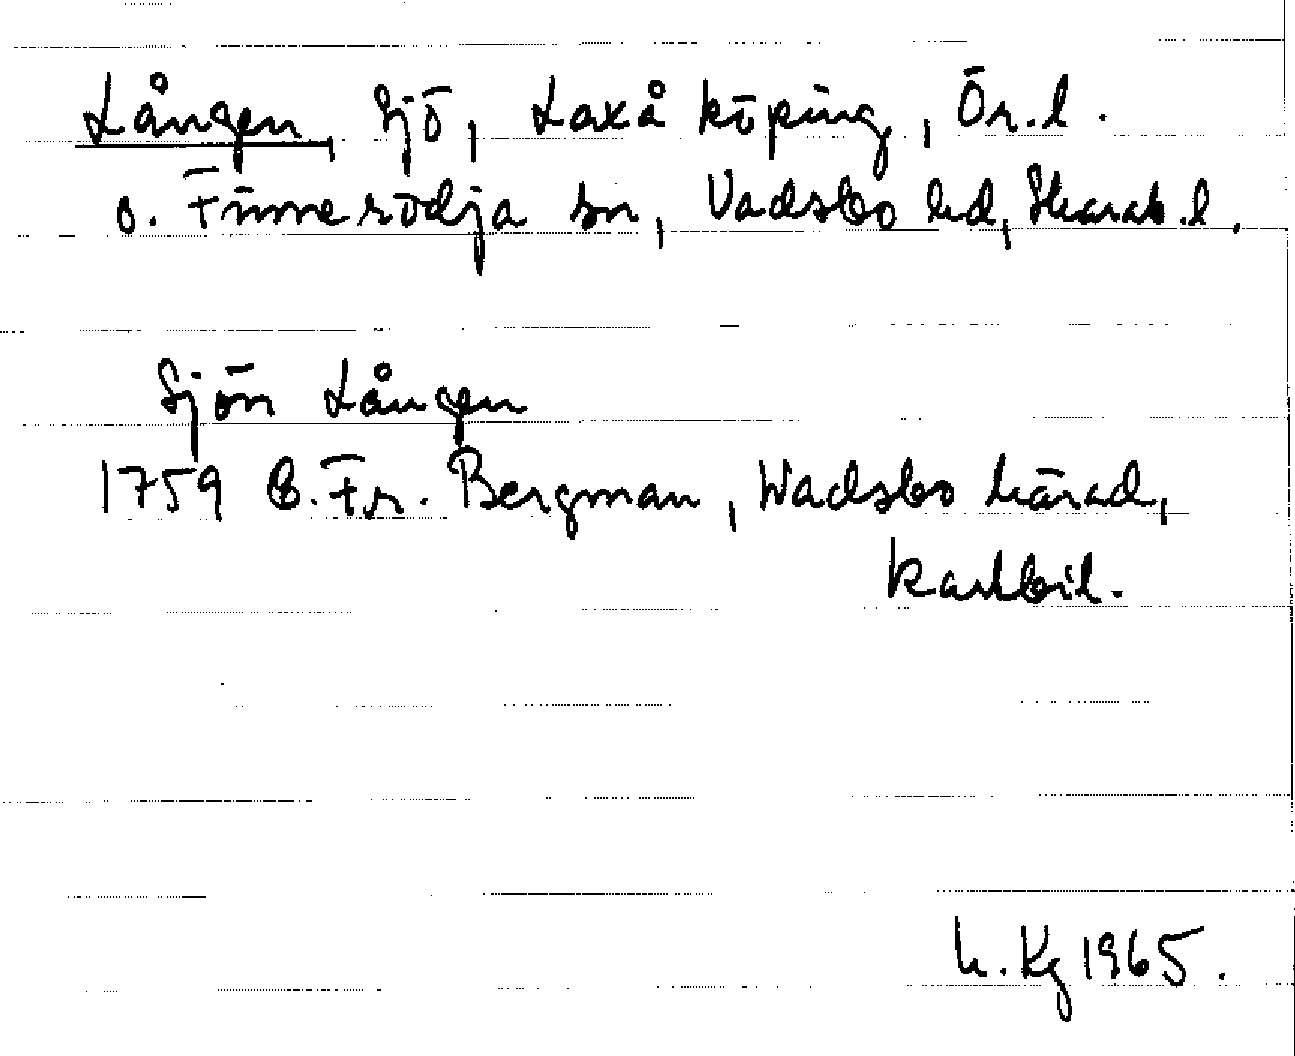 Lången, sjö, Laxå köping, Ör.l.
o. Finnerödja sn, Vadsbo hd, Skarab.l.
Sjön Lången
1759 B.Fr. Bergman, Wadsbo härad,
kartbil.
h. Kg 1965.